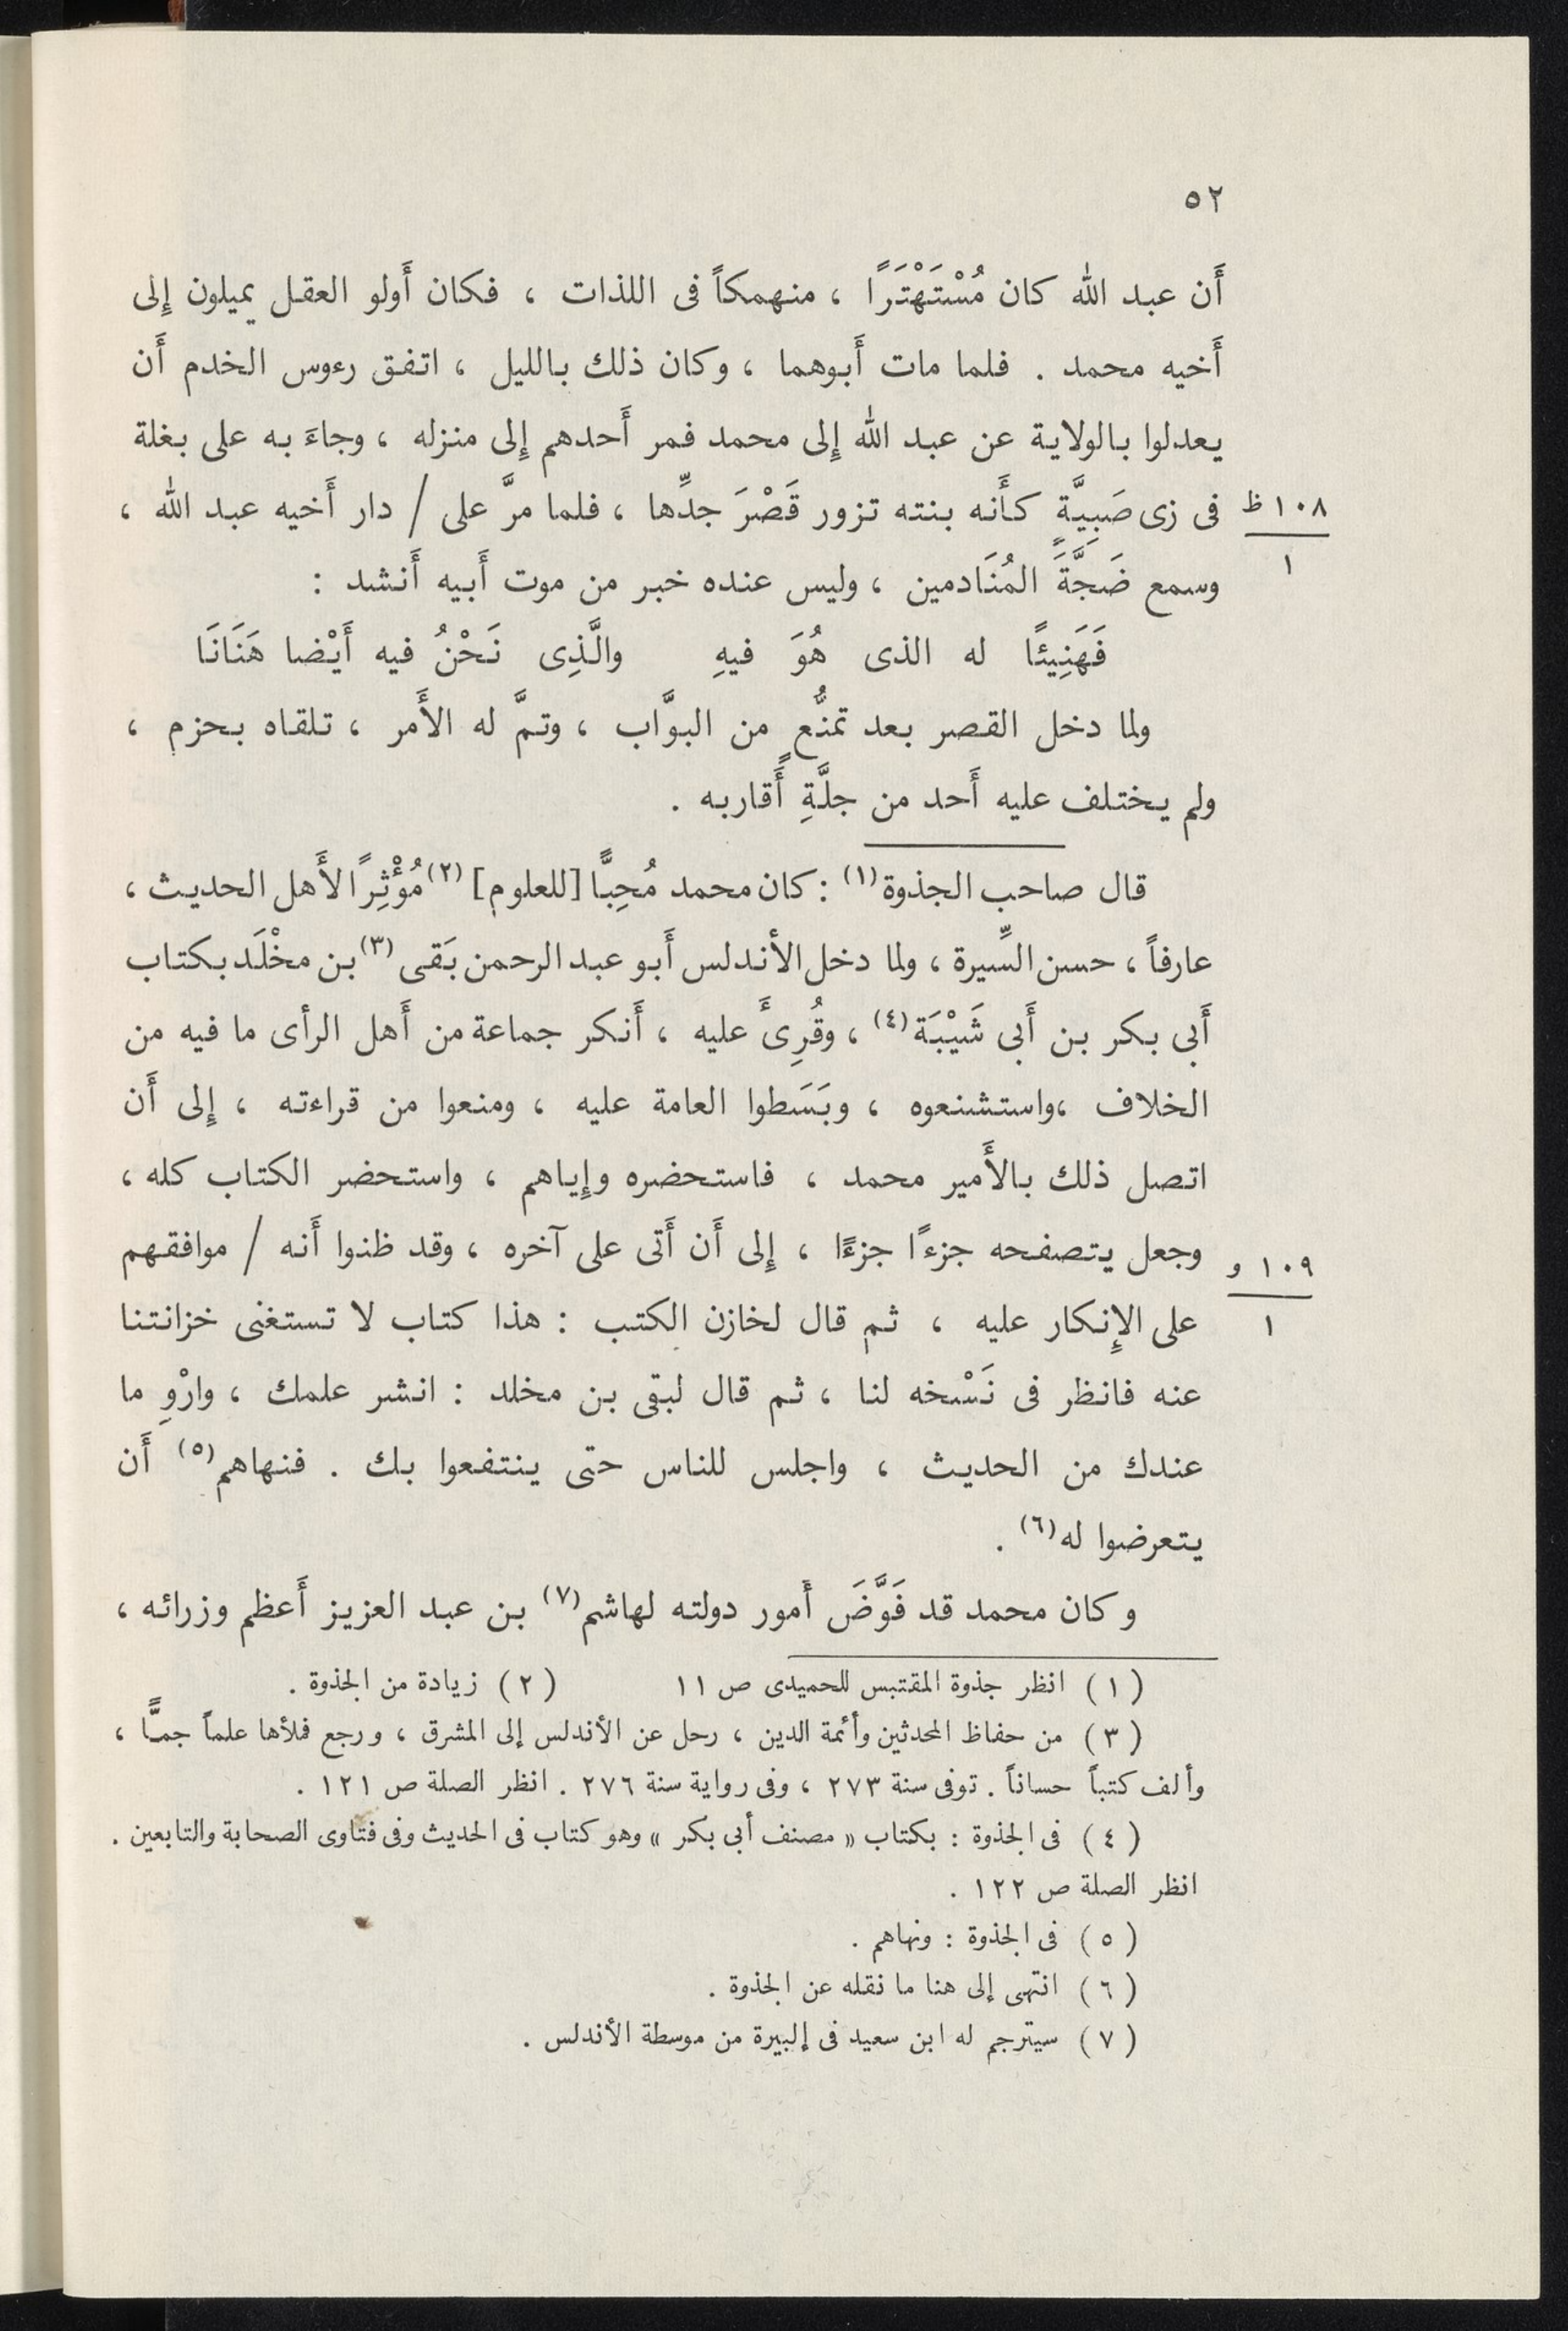 ٥٢
أَن عبد الله كان مُسْتَهْتَرًا ، منهمكاً فى اللذات ، فكان أَولو العقل يميلون إِلى
أَخيه محمد . فلما مات أَبوهما ، وكان ذلك بالليل ، اتفق رءوس الخدم أَن
يعدلوا بالولاية عن عبد الله إِلى محمد فمر أَحدهم إِلى منزله ، وجاءَ به على بغلة
فى زى صَبِيَّةٍ كأَنه بنته تزور قَصْرَ جدِّها ، فلما مرَّ على / دار أَخيه عبد الله ،
١٠٨ ظ
١
وسمع ضَجَّةَ المُنَادمين ، وليس عنده خبر من موت أَبيه أَنشد :
فَهَنِيئًا له الذى هُوَ فيهِ والَّذِى نَحْنُ فيه أَيْضا هَنَانَا
ولما دخل القصر بعد تمنُّعٍ من البوَّاب ، وتمَّ له الأَمر ، تلقاه بحزم ،
ولم يختلف عليه أَحد من جلَّةِ أَقاربه .
قال صاحب الجذوة(١) : كان محمد مُحِبًّا [للعلوم](٢) مُؤْثِرًا لأَهل الحديث ،
عارفاً ، حسن السِّيرة ، ولما دخل الأندلس أَبو عبد الرحمن بَقى(٣) بن مخْلَد بكتاب
أَبى بكر بن أَبى شَيْبَة(٤) ، وقُرِىَٔ عليه ، أَنكر جماعة من أَهل الرأى ما فيه من
الخلاف ،واستشنعوه ، وبَسَطوا العامة عليه ، ومنعوا من قراءته ، إِلى أَن
اتصل ذلك بالأَمير محمد ، فاستحضره وإِياهم ، واستحضر الكتاب كله ،
وجعل يتصفحه جزءًا جزءًا ، إِلى أَن أَتى على آخره ، وقد ظنوا أَنه / موافقهم
١٠٩ و
١
على الإِنكار عليه ، ثم قال لخازن الكتب : هذا كتاب لا تستغنى خزانتنا
عنه فانظر فى نَسْخه لنا ، ثم قال لبقى بن مخلد : انشر علمك ، وارْوِ ما
عندك من الحديث ، واجلس للناس حتى ينتفعوا بك . فنهاهم(٥) أَن
يتعرضوا له(٦) .
وكان محمد قد فَوَّضَ أَمور دولته لهاشم(٧) بن عبد العزيز أَعظم وزرائه ،
(١) انظر جذوة المقتبس للحميدى ص ١١ (٢) زيادة من الجذوة .
(٣) من حفاظ المحدثين وأئمة الدين ، رحل عن الأندلس إلى المشرق ، ورجع فملأها علماً جمًّا ،
وألف كتباً حساناً . توفى سنة ٢٧٣ ، وفى رواية سنة ٢٧٦ . انظر الصلة ص ١٢١ .
(٤) فى الجذوة : بكتاب « مصنف أبى بكر » وهو كتاب فى الحديث وفى فتاوى الصحابة والتابعين .
انظر الصلة ص ١٢٢ .
(٥) فى الجذوة : ونهاهم .
(٦) انتهى إلى هنا ما نقله عن الجذوة .
(٧) سيترجم له ابن سعيد فى إلبيرة من موسطة الأندلس .